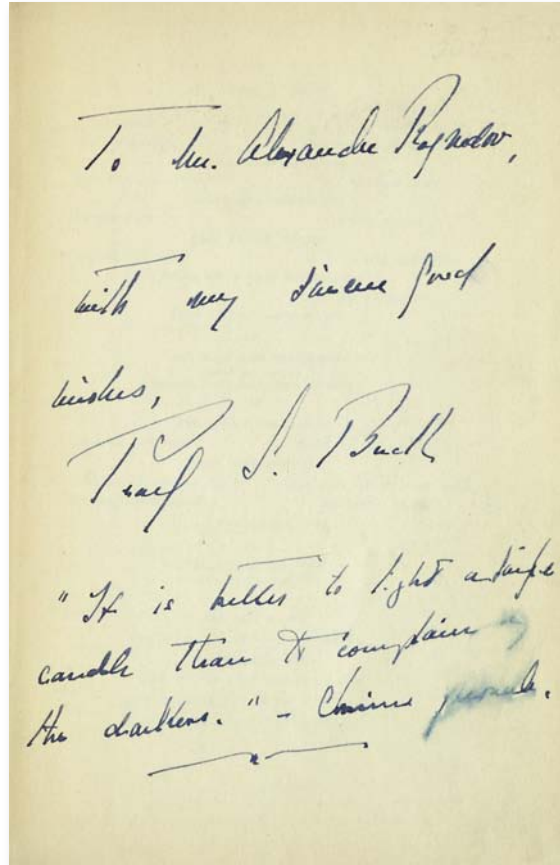 To Mr. Alexandre Rognedov,
with my sincere good
wishes,
Pearl S. Buck
"It is better to light a single
candle than to complain of
the darkness." - Chinese proverb.